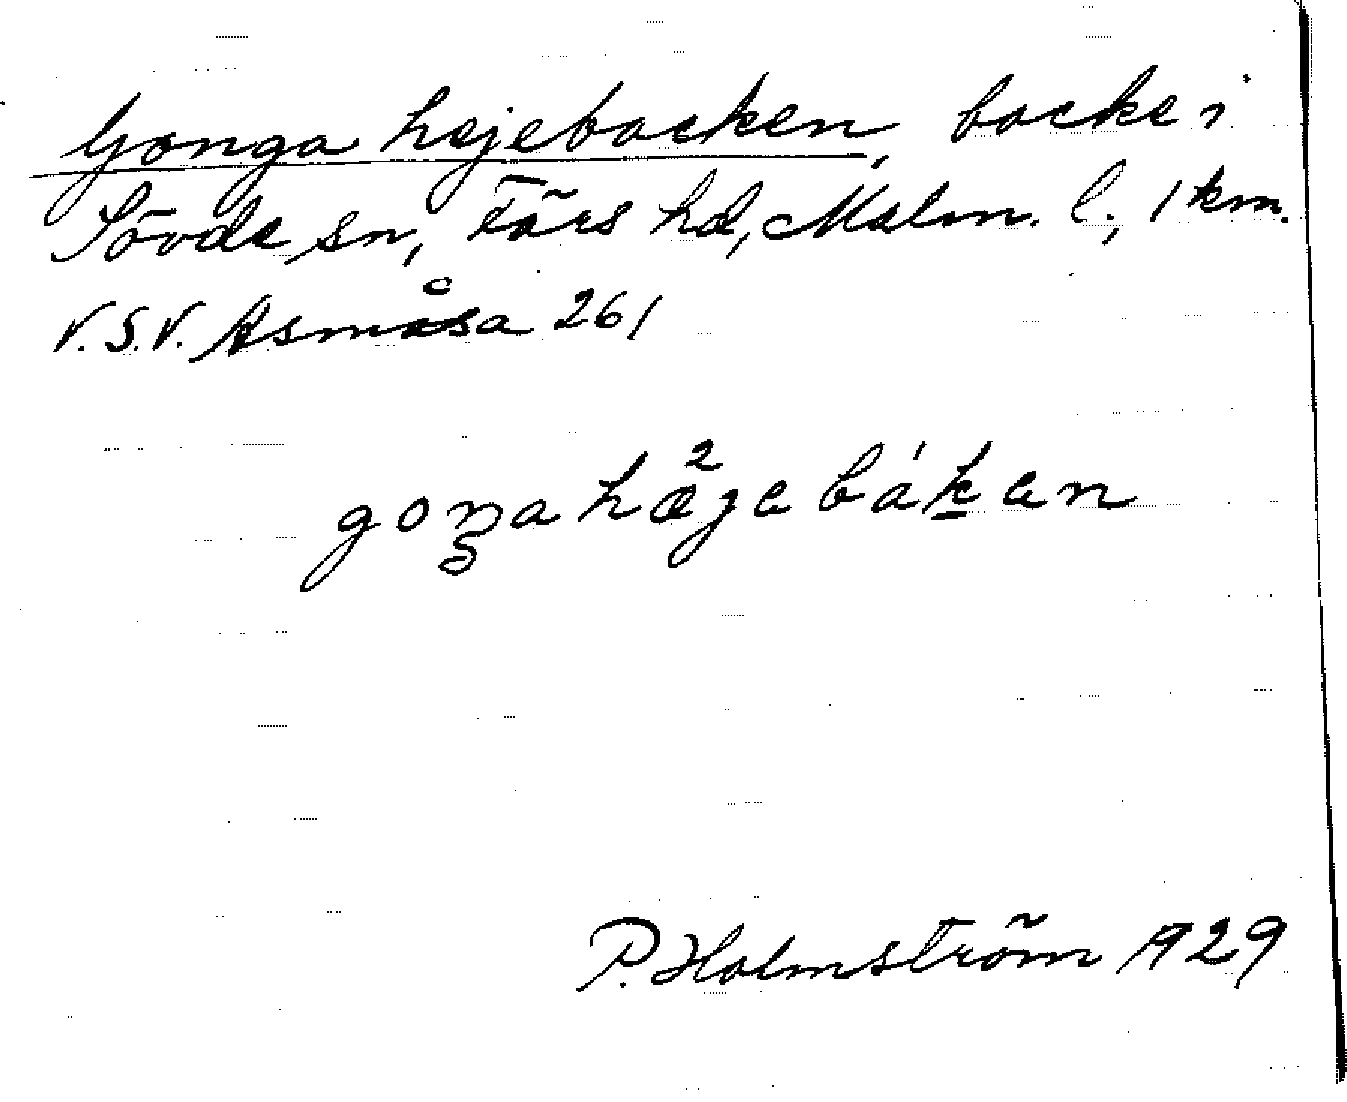 Gonga hejebacken, backe i
Sövde sn, Färs hd, Malm. l., 1 km.
V.S.V. Åsmåsa 261
goŋahæ²jebáken
P. Holmström 1929